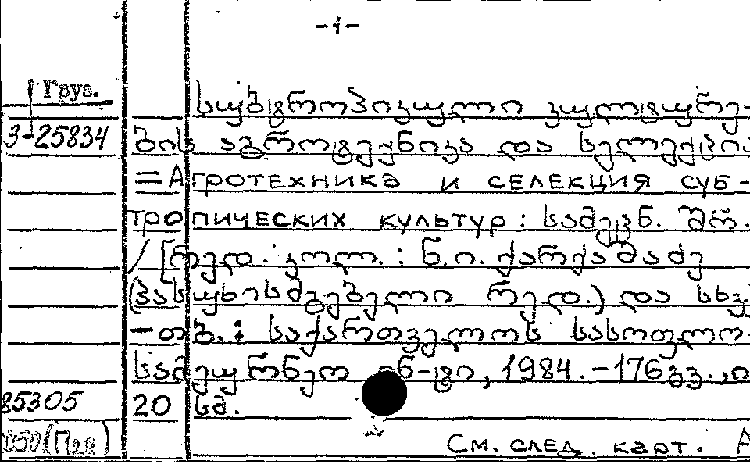 -1-
Груз.
სუბტროპიკული კულტურე-
3-25834 ბის აგროტექნიკა და სელექცი
=Агротехника и селекция суб-
тропических культур: სამეცნ. შრ.
/ [რედ. კოლ.: ნ.ი. ქარქაშაძე
(პასუხისმგებელი რედ.) და სხვ
-თბ.: საქართველოს სასოფლო
სამეურნეო ინ-ტი, 1984.-176გვ.,
85305 20 სმ.
См. след. карт.